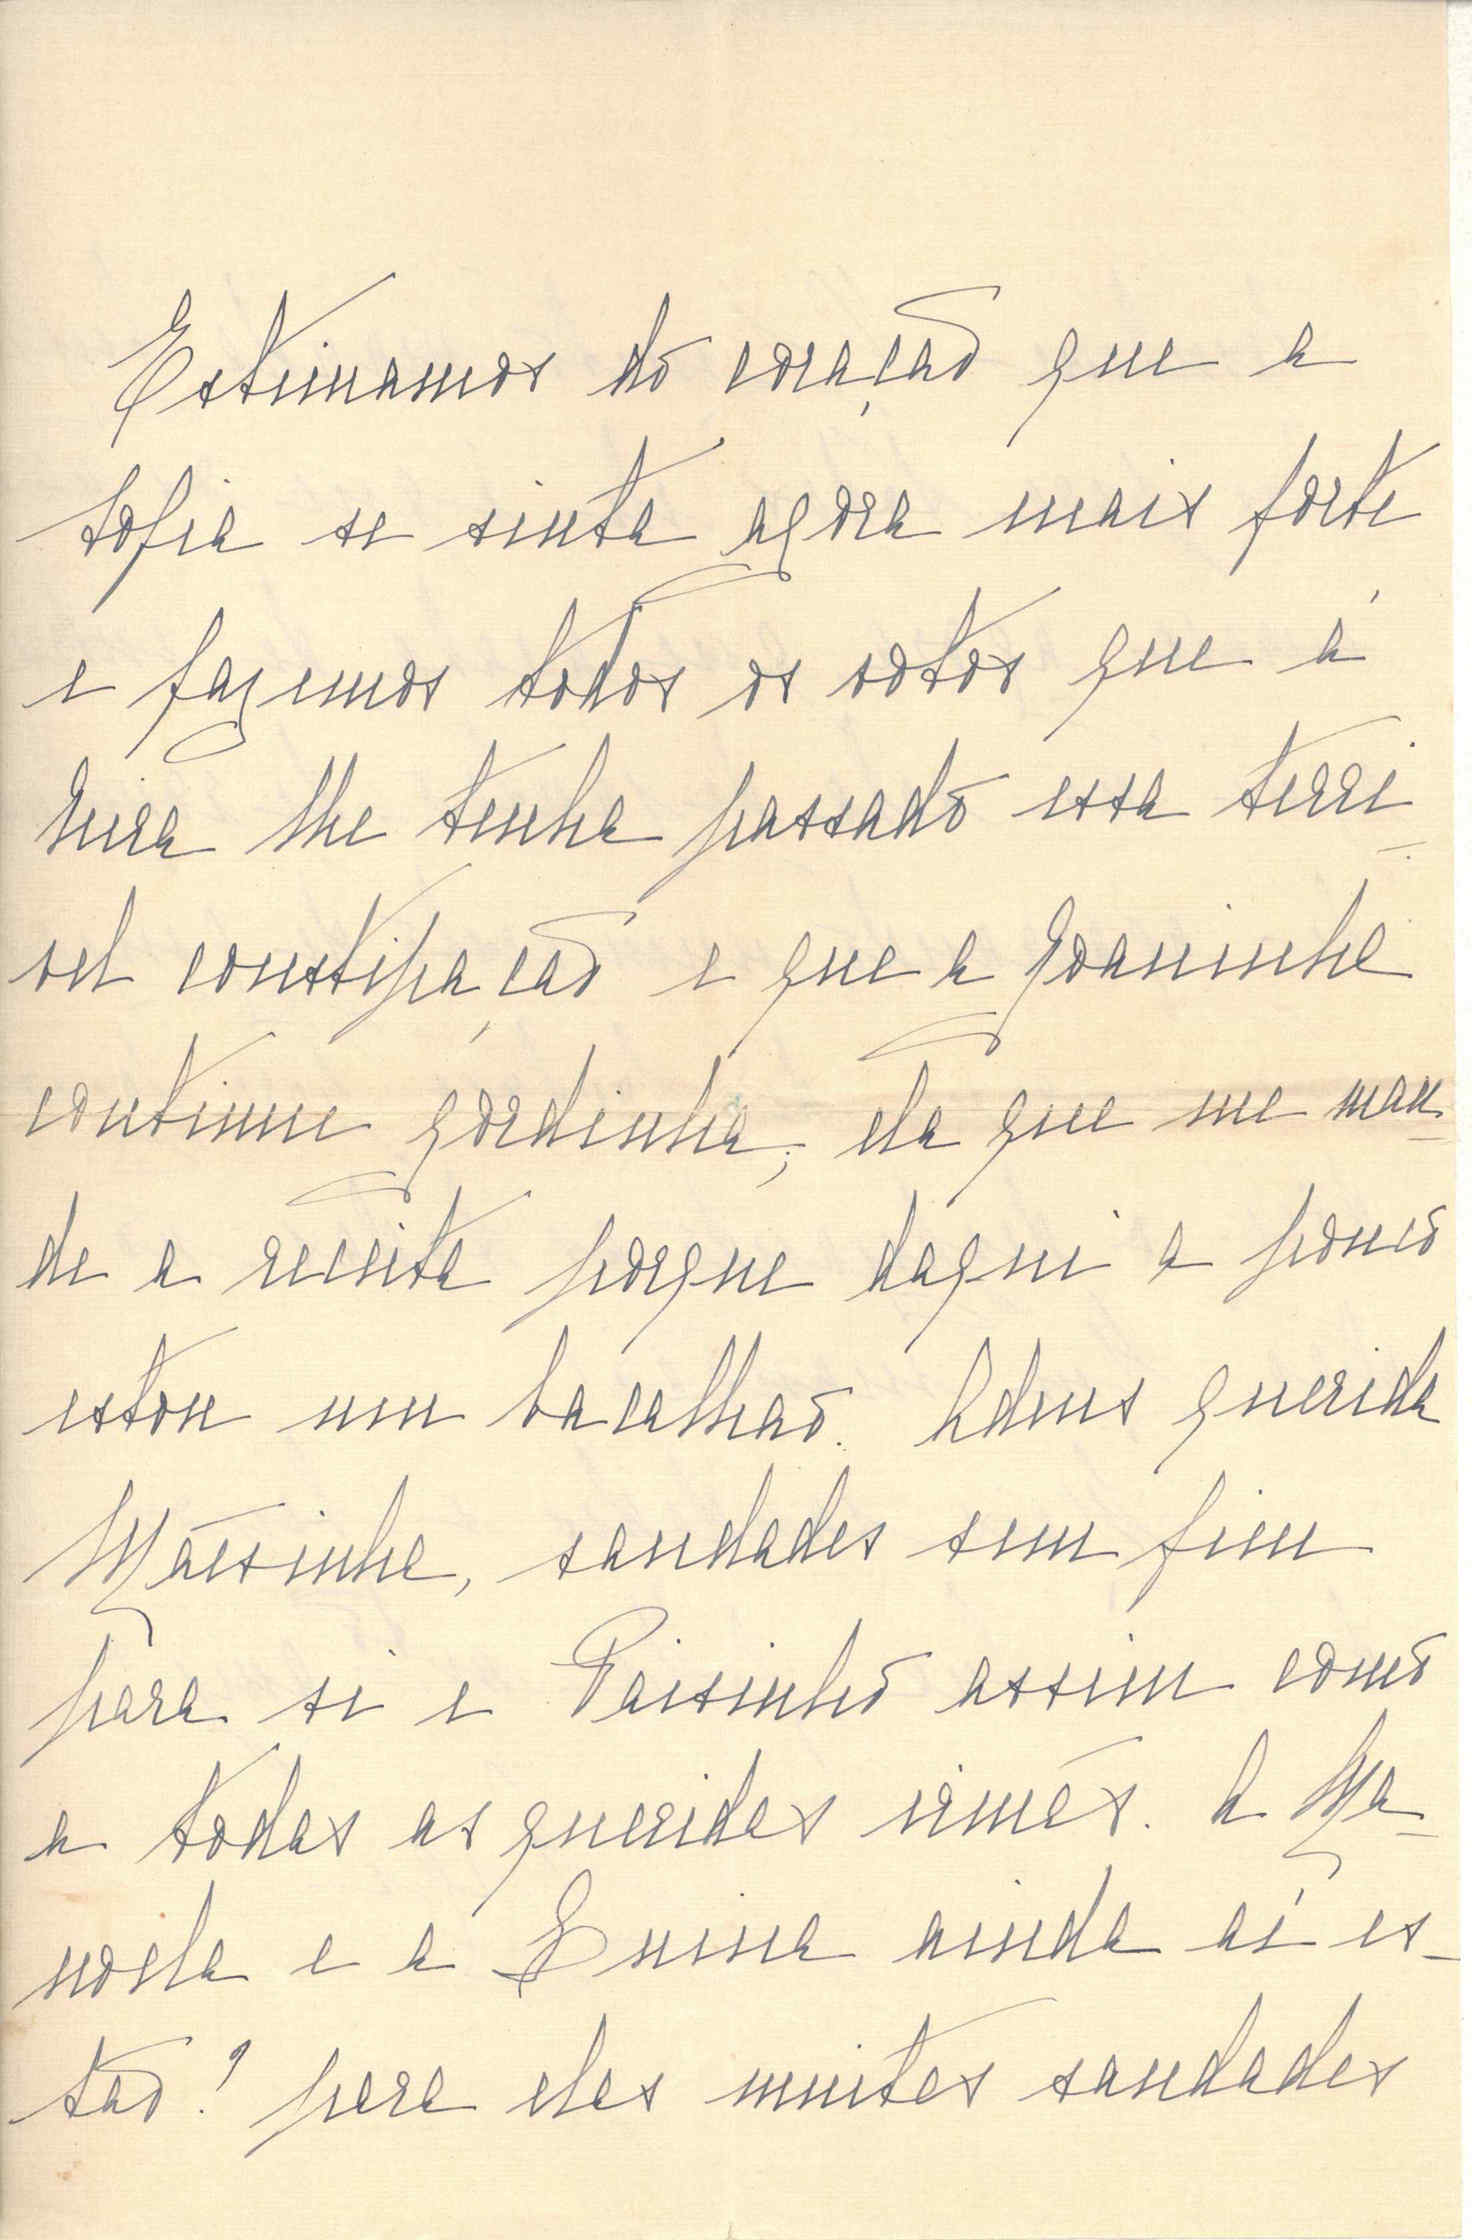 Estimamos do coração que a
Sofia se sinta agora mais forte
e fazemos todos os votos que á
lhe tenha passado essa terri-
vel constipação e que a Joaninha
continue gordinha; ela que me man-
de a receita porque daqui a pouco
estou um bacalhao. Adeus querida
Mãesinha, saudades sem fim
para si e Paisinho assim como
a todas as queridas irmãs. A Ma-
noela e a Enina ainda aí es-
tão? para elas muitas saudades